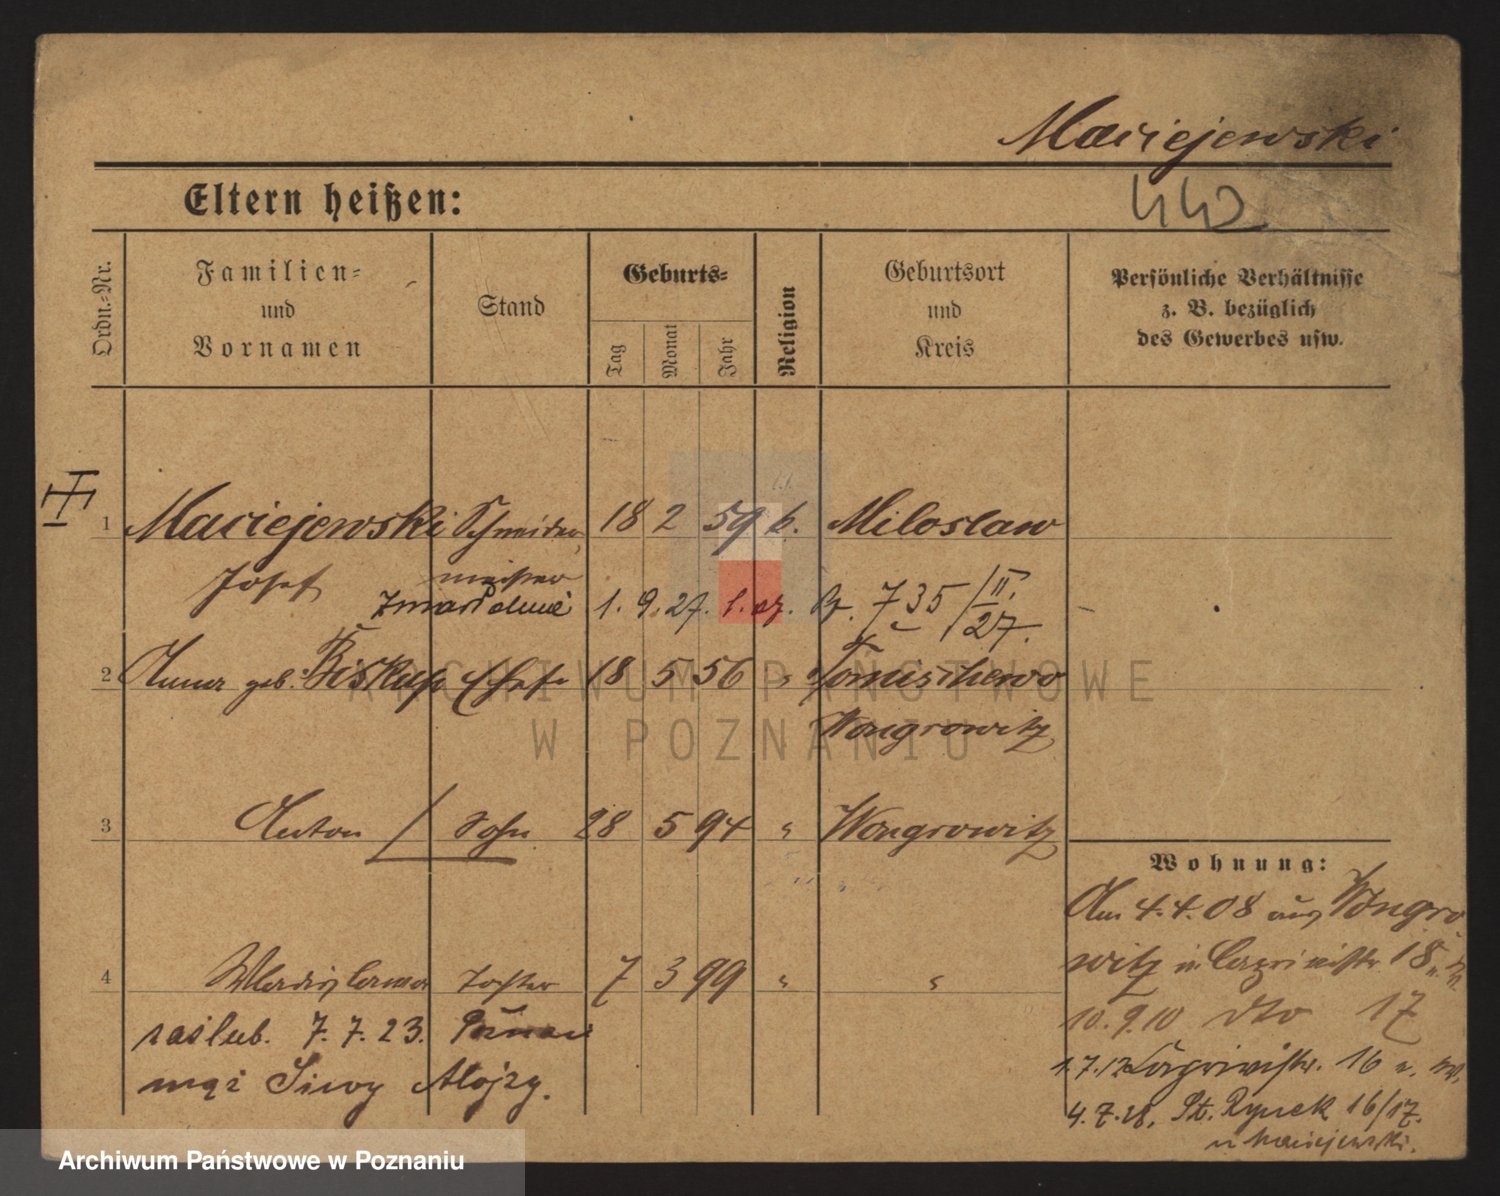 Maciejewski
Eltern heißen:
442
Ordn.-Nr.
Familien-
und
Vornamen
Stand
Geburts-
Tag
Monat
Jahr
Religion
Geburtsort
und
Kreis
Persönliche Verhältnisse
z. B. bezüglich
des Gewerbes usw.
1 Maciejewski Schneider 18 2 59 k. Miloslaw
Josef meister
1. 9. 27. 735/II.
27.
2 Anna geb. Biskup Ehefr 18 5 56 " Tomischewo
Wongrowitz
3 Anton / Sohn 28 5 94 " Wongrowitz
Wohnung:
Am 4.4.08 aus Wongro
4 Wladislawa Tochter 7 3 99 " "
witz 18
zaślub. 7.7.23. Poznań
10.9.10 dto 17
mąż Siwy Alojzy.
16
4.7.28. St. Rynek 16/17.
u Maciejewski.
ARCHIWUM PAŃSTWOWE
W POZNANIU
Archiwum Państwowe w Poznaniu